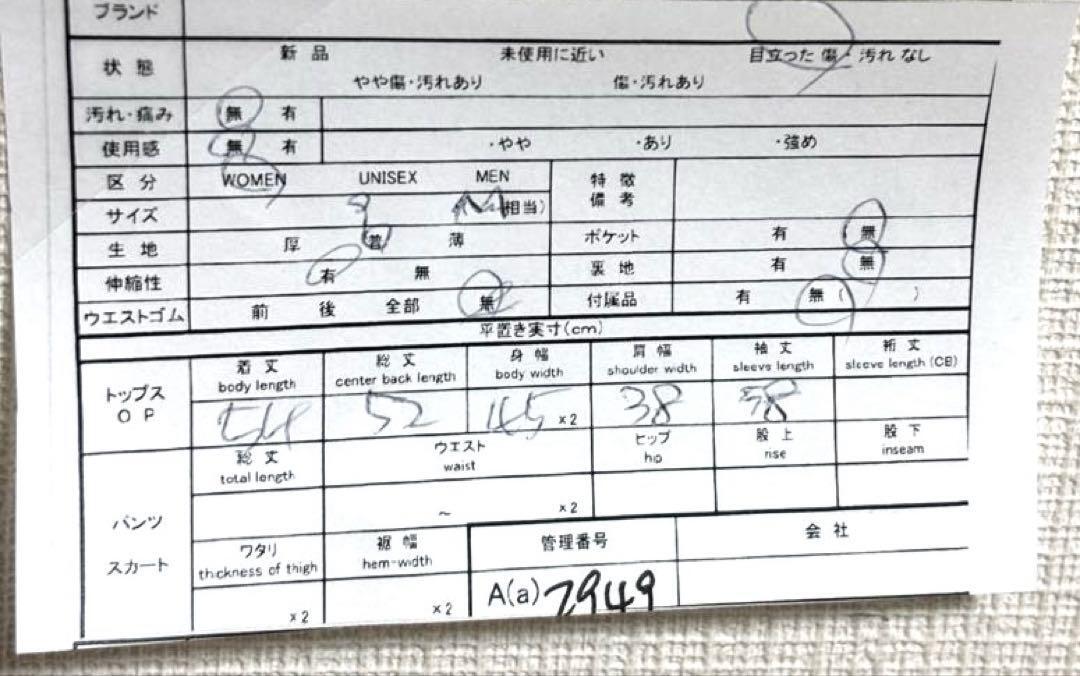 ブランド
状態 新品 未使用に近い 目立った傷・汚れなし
やや傷・汚れあり 傷・汚れあり
汚れ・痛み 無 有
使用感 無 有 ・やや ・あり ・強め
区分 WOMEN UNISEX MEN 特徴
備考
サイズ 9 M 相当)
生地 厚 普 薄 ポケット 有 無
伸縮性 有 無 裏地 有 無
ウエストゴム 前 後 全部 無 付属品 有 無 ( )
平置き実寸(cm)
トップス
OP
着丈 総丈 身幅 肩幅 袖丈 裄丈
body length center back length body width shoulder width sleeve length sleeve length (CB)
54 52 45 ×2 38 58
パンツ
スカート
総丈 ウエスト ヒップ 股上 股下
total length waist hip rise inseam
~ ×2
ワタリ 裾幅 管理番号 会社
thickness of thigh hem-width
×2 ×2 A(a) 7949